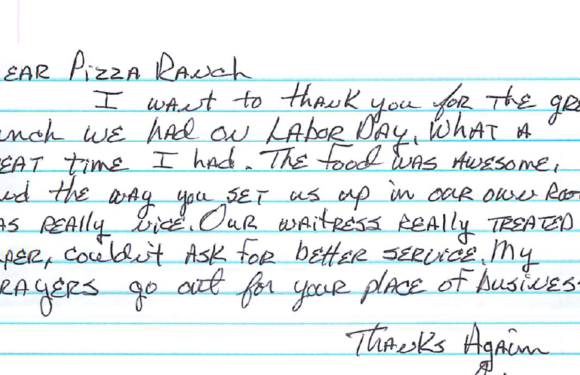 EAR Pizza Ranch
I want to thank you for the gre
unch we had on Labor Day. What a
eat time I had. The food was awesome,
nd the way you set us up in our own Roo
as really nice. Our waitress really treated
per, couldn't ask for better service. My
rayers go out for your place of busines
Thanks Again